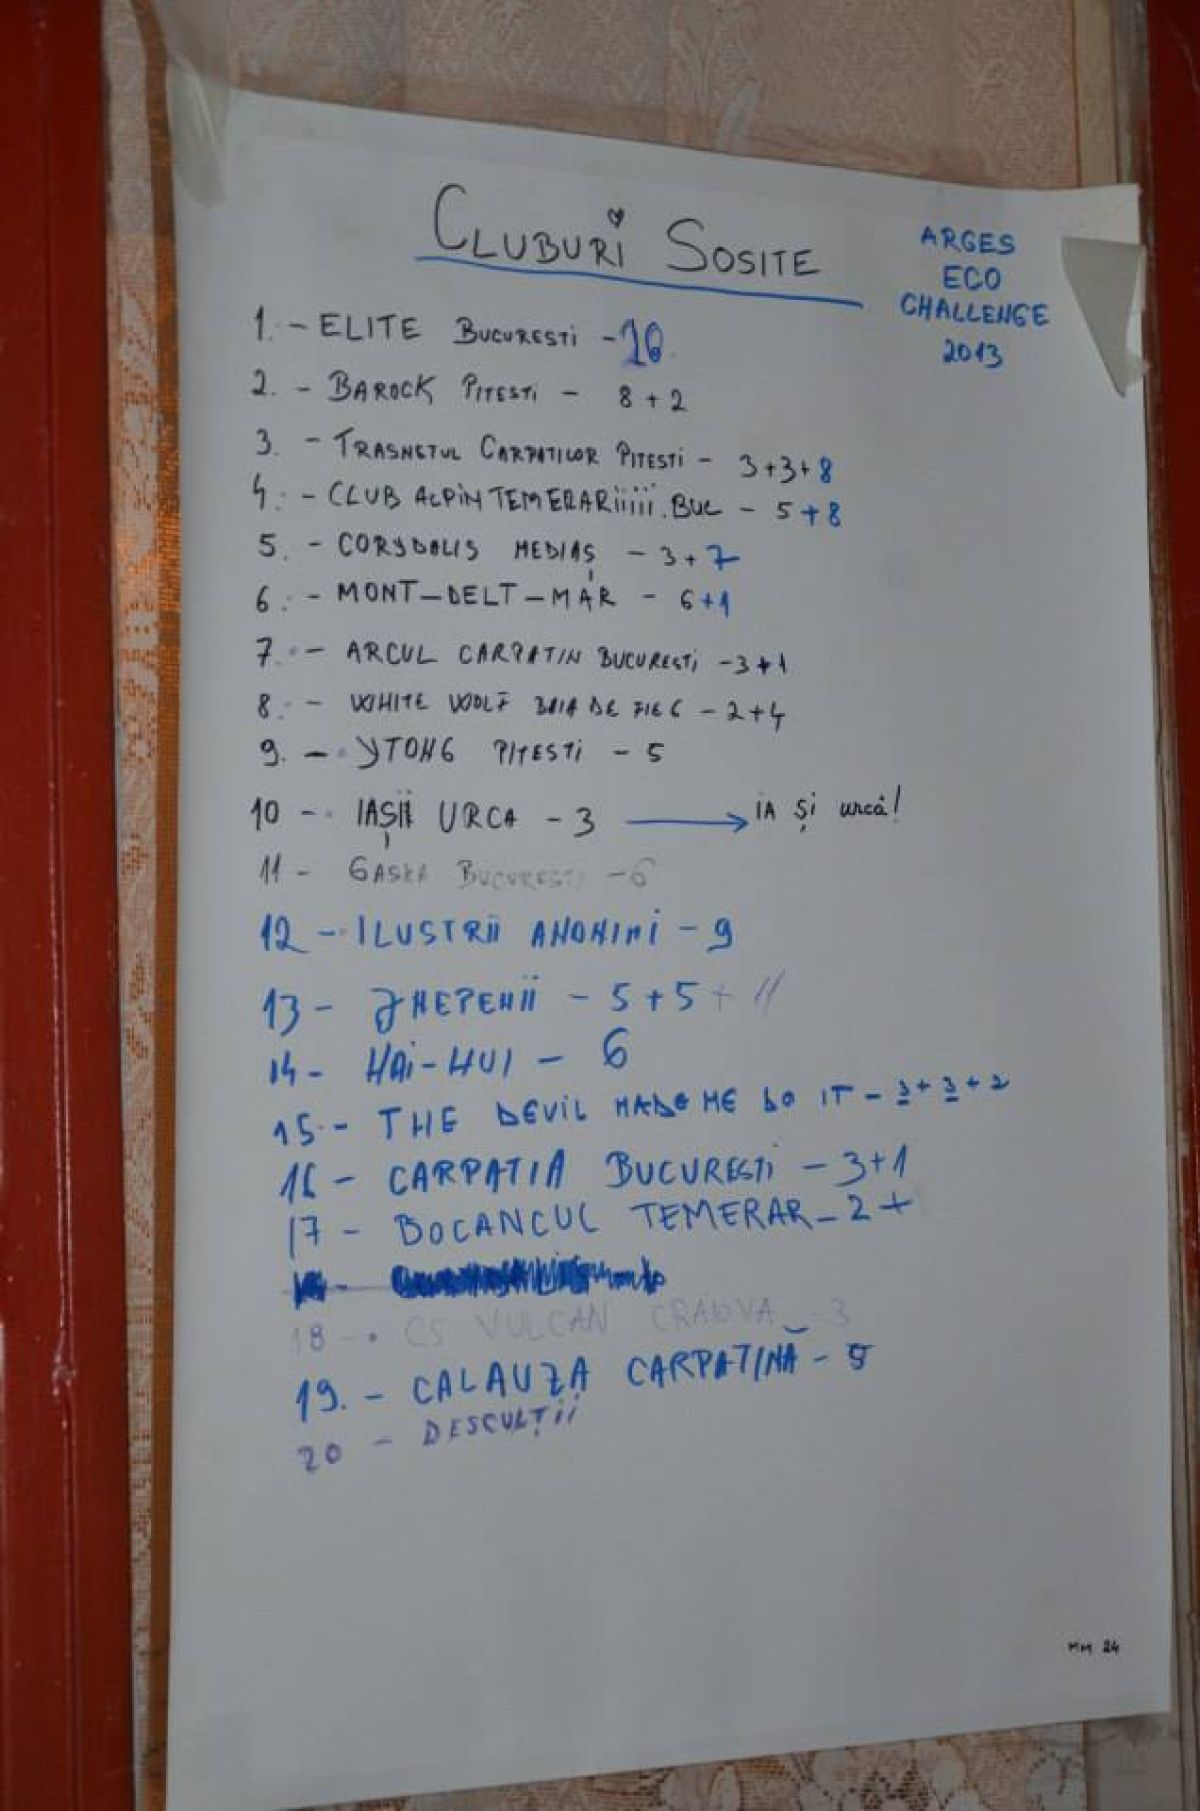 CLUBURI SOSITE
ARGES
ECO
CHALLENGE
2013
1. - ELITE BUCURESTI - 10
2. - BAROCK PITESTI - 8 + 2
3. - TRASNETUL CARPATILOR PITESTI - 3+3+8
4. - CLUB ALPIN TEMERARiiiii. BUC - 5 + 8
5. - CORYDALIS MEDIAȘ - 3 + 7
6. - MONT-DELT-MAR - 6+1
7. - ARCUL CARPATIN BUCURESTI - 3+1
8. - WHITE WOLF BAIA DE FIER - 2+4
9. - YTONG PITESTI - 5
10 - IAȘII URCA - 3 → IA ȘI urcă!
11 - GASKA BUCURESTI - 6
12 - ILUSTRII ANONIMI - 9
13 - JNEPENII - 5 + 5 + 11
14 - HAI-HUI - 6
15. - THE DEVIL MADE ME DO IT - 3 + 3 + 2
16 - CARPATIA BUCURESTI - 3+1
17 - BOCANCUL TEMERAR - 2 +
18 - CS VULCAN CRAIOVA - 3
19. - CALAUZA CARPATINĂ -
20 - DESCULȚII
MM 24